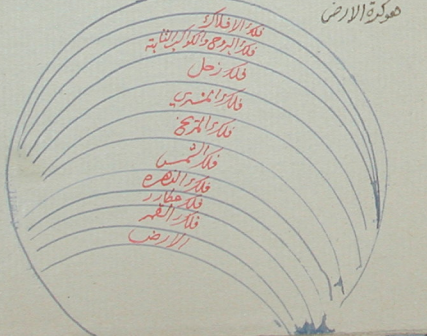 هو كرة الارض
فلك الافلاك
فلك البروج والكواكب الثابتة
فلك زحل
فلك المشتري
فلك المريخ
فلك الشمس
فلك الزهرة
فلك عطارد
فلك القمر
الارض